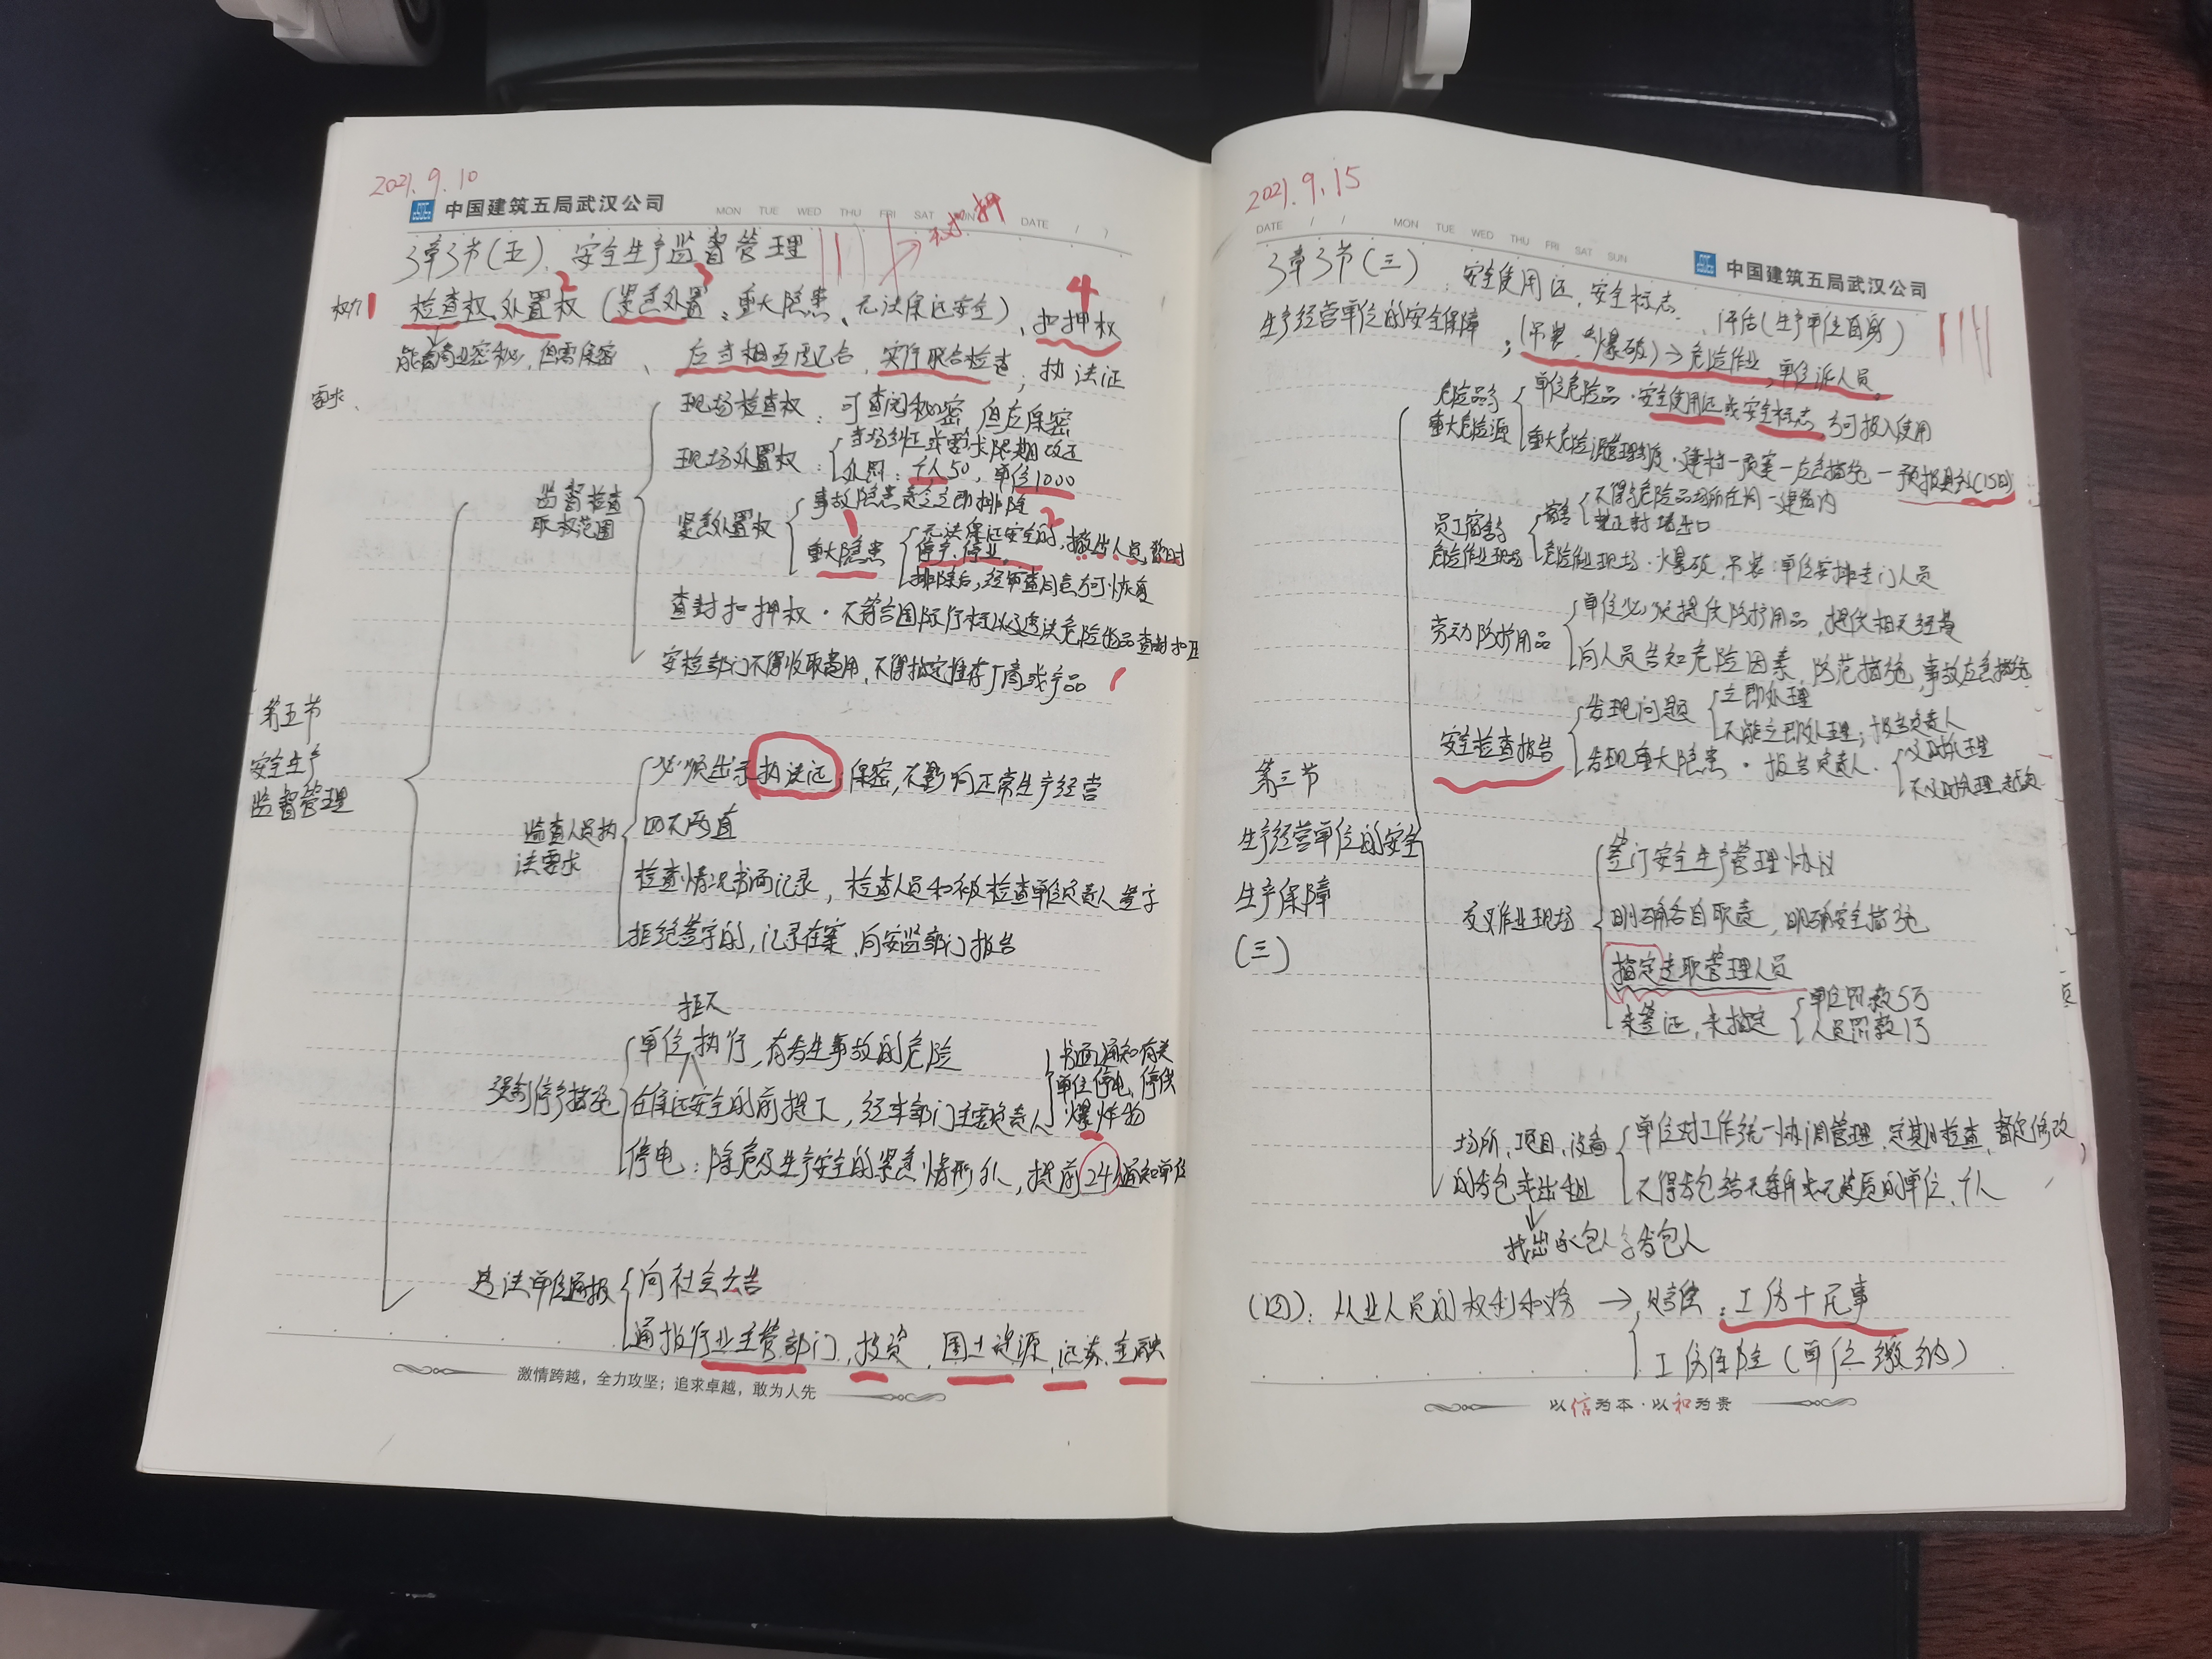 2021.9.10
中国建筑五局武汉公司
MON TUE WED THU FRI SAT SUN DATE / /
3章3节(五)、安全生产监督管理
扣押
权力1 检查权、处置权(紧急处置:重大隐患、无法保证安全)、扣押权
2 3 4
能看商业密秘,但需保密、应当相互配合,实行联合检查;执法证
要求、
第五节
安全生产
监督管理
监督检查
职权范围
现场检查权:可查阅秘密 但应保密
现场处置权:
当场纠正或要求限期改正
处罚:个人50,单位1000
紧急处置权
事故隐患应立即排除
1 2
重大隐患
无法保证安全的,撤出人员,暂时
停产、停业。
排除后,经审查同意方可恢复
查封扣押权·不符合国际行标以及违法危险物品查封扣压
安检部门不得收取费用、不得指定推荐厂商或产品
监查人员执
法要求
必须出示执法证;保密,不影响正常生产经营
四不两直
检查情况书面记录,检查人员和被检查单位负责人签字
拒绝签字的,记录在案,向安监部门报告
强制停产措施
拒不
单位执行,有发生事故的危险
在保证安全的前提下,经本部门主要负责人
书面通知有关
单位停电、停供
爆炸物
停电:除危及生产安全的紧急情形外,提前24h通知单位
违法单位通报
向社会公告
通报行业主管部门,投资,国土资源,证券,金融
激情跨越,全力攻坚;追求卓越,敢为人先
2021.9.15
DATE / / MON TUE WED THU FRI SAT SUN
中国建筑五局武汉公司
3章3节(三):安全使用证,安全标志、评估(生产单位自身)
生产经营单位的安全保障;(吊装、爆破)→危险作业,单位派人员。
第三节
生产经营单位的安全
生产保障
(三)
危险品与
重大危险源
单位危险品·安全使用证或安全标志,方可投入使用
重大危险源管理制度·建档一预案一应急措施一
员工宿舍与
危险作业现场
宿舍
不得与危险品场所在同一建筑内
禁止封堵出口
危险作业现场·爆破,吊装:单位安排专门人员
劳动防护用品
单位必须提供防护用品,提供相关经费
向人员告知危险因素,防范措施,事故应急措施
安全检查报告
发现问题
立即处理
不能立即处理;报告负责人
发现重大隐患·报告负责人·
及时处理
不及时处理,越级
交叉作业现场
签订安全生产管理协议
明确各自职责,明确安全措施
指定专职管理人员
未签证,未指定
单位罚款5万
人员罚款1万
场所、项目、设备
的发包或出租
单位对工作统一协调管理,定期检查,督促修改
不得发包给无条件或无资质的单位、个人
找出承包人与发包人
(四):从业人员的权利和义务→赔偿:工伤+民事
工伤保险(单位缴纳)
以信为本·以和为贵